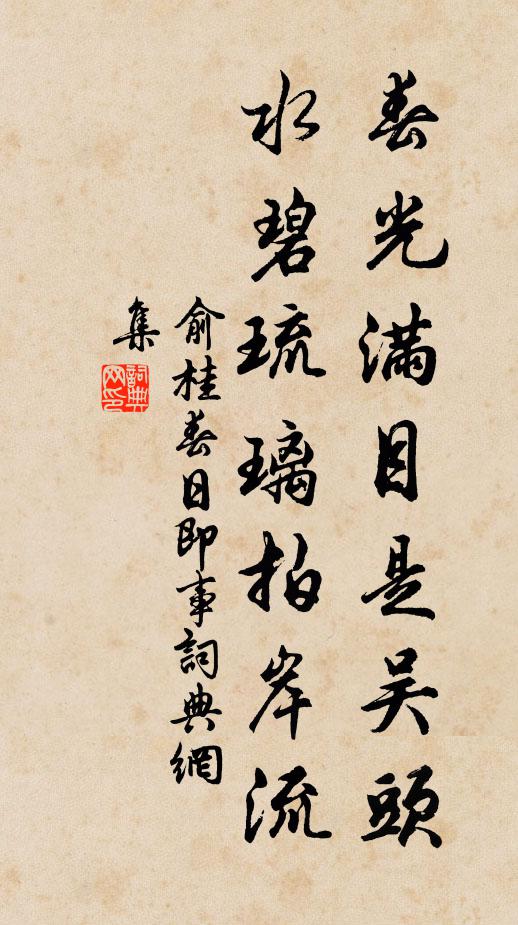 春光滿目是吴頭
水碧琉璃拍岸流
俞桂春日即事詞典網
集
詞典
网印